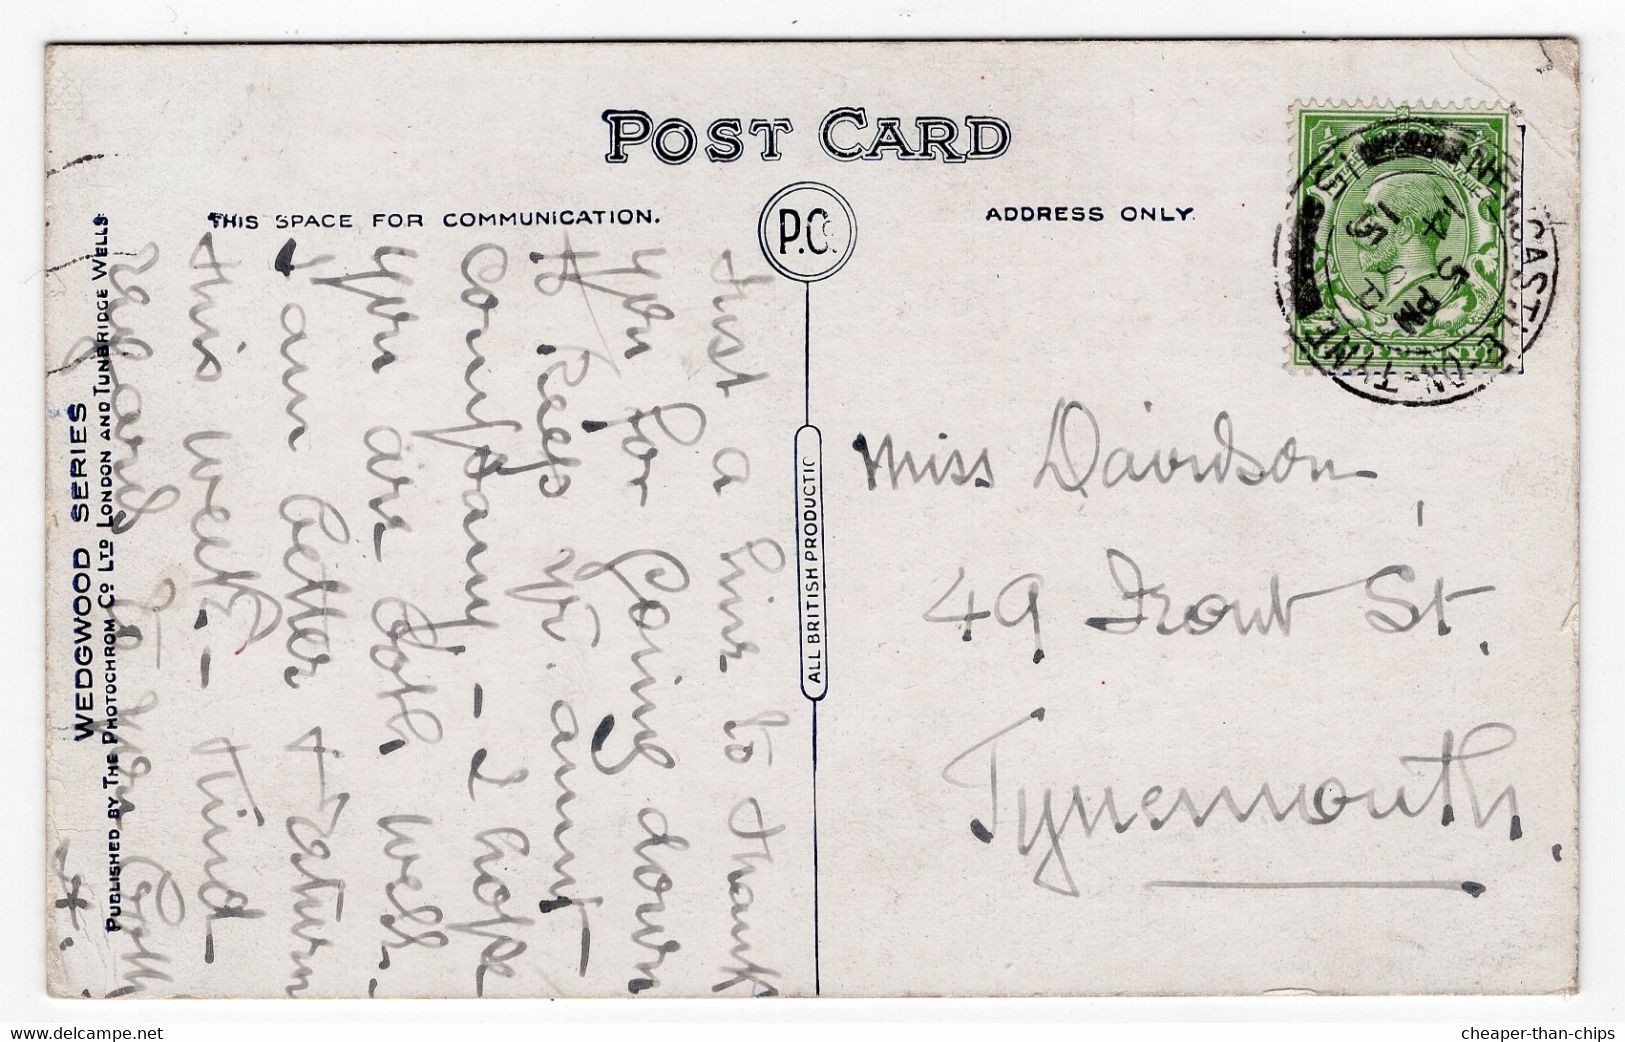 POST CARD
THIS SPACE FOR COMMUNICATION.
ADDRESS ONLY.
P.Co.
ALL BRITISH PRODUCTIO
WEDGWOOD SERIES
PUBLISHED BY THE PHOTOCHROM CO LTD LONDON AND TUNBRIDGE WELLS
Just a line to thank
you for going down
to keep yr. aunt
company - I hope
you are both well.
I am better & return
this week. - Kind
regards to you both
NEWCASTLE-ON-TYNE
5 PM
4
15
HALFPENNY
Miss Davidson,
49 Front St.
Tynemouth.
cheaper-than-chips